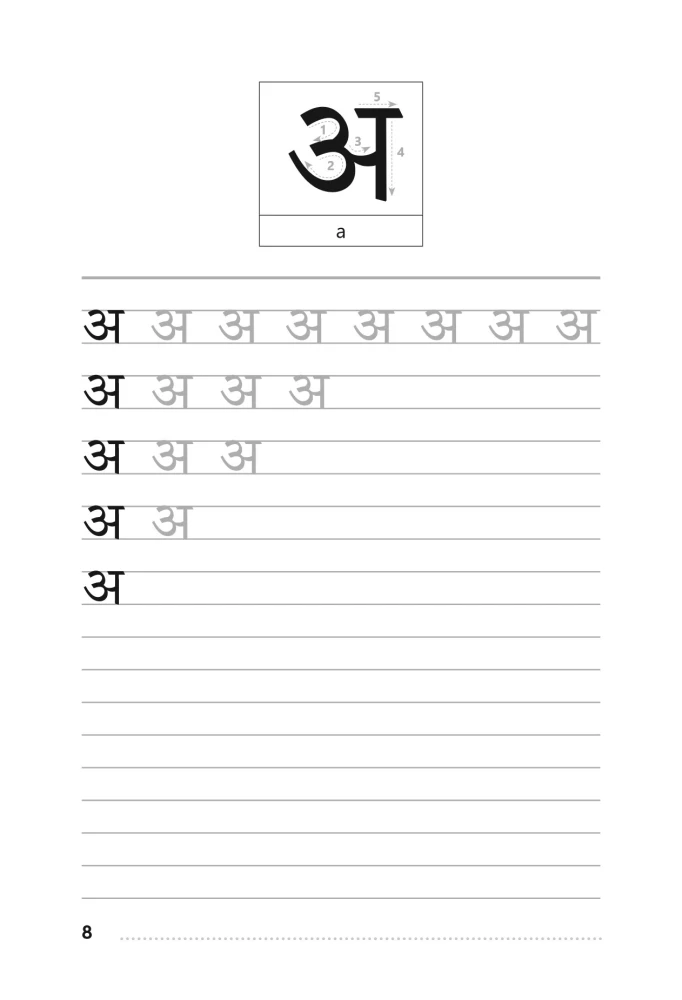 अ
5
1
3
4
2
a
अ अ अ अ अ अ अ अ
अ अ अ अ
अ अ अ
अ अ
अ
8